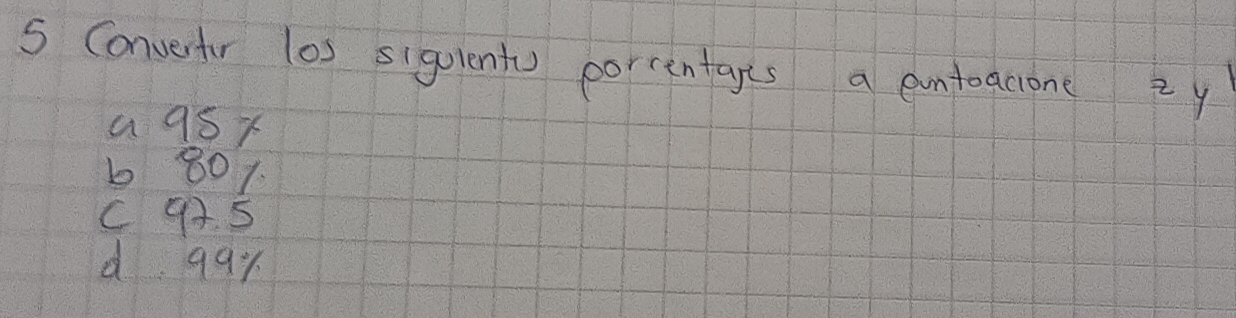 5 Convertir los siguientes porcentajes a puntoacione z y
a 95 %
b 80 %.
c 97.5
d. 99%